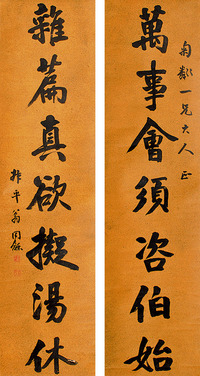 菊一兄大人正
萬事會須咨伯始
雜篇真欲擬湯休
叔平翁同龢